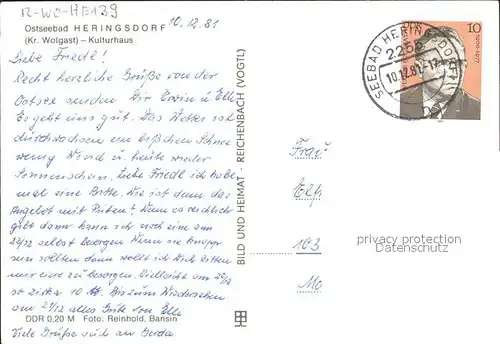 R-WO-HE139
Ostseebad HERINGSDORF
10.12.81
(Kr. Wolgast) – Kulturhaus
Liebe Friedl!
Recht herzliche Grüße von der
Ostsee senden Dir Erwin u Elle
Es geht uns gut. Das Wetter ist
durchwachsen ein bißchen Schnee
wenig Wind u. heute wieder
Sonnenschein. Liebe Friedl ich habe
mal eine Bitte. Wie ist denn das
Angebot mit Puten? Wenn es reichlich
gibt dann kann ich noch eine am
22/12 selbst besorgen Wenn sie knapp
sein sollten dann wollt ich Dich bitten
mir eine zu besorgen. Vielleicht am
so zirka 10 Bis zum Wiedersehen
am alles Gute von Elle
Viele Grüße auch an Gerda
DDR 0,20 M Foto: Reinhold, Bansin
BILD UND HEIMAT · REICHENBACH (VOGTL)
SEEBAD HERINGSDORF
2255
10.12.81-17
10
DDR
Frau
163
privacy protection
Datenschutz